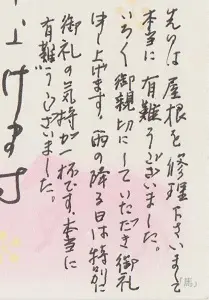 先日は屋根を修理下さいまして
本当に有難うございました。
いろいろ御親切にしていただき御礼
申し上げます。雨の降る日は特別に
御礼の気持が一杯です。本当に
有難うございました。
上げます
「馬」